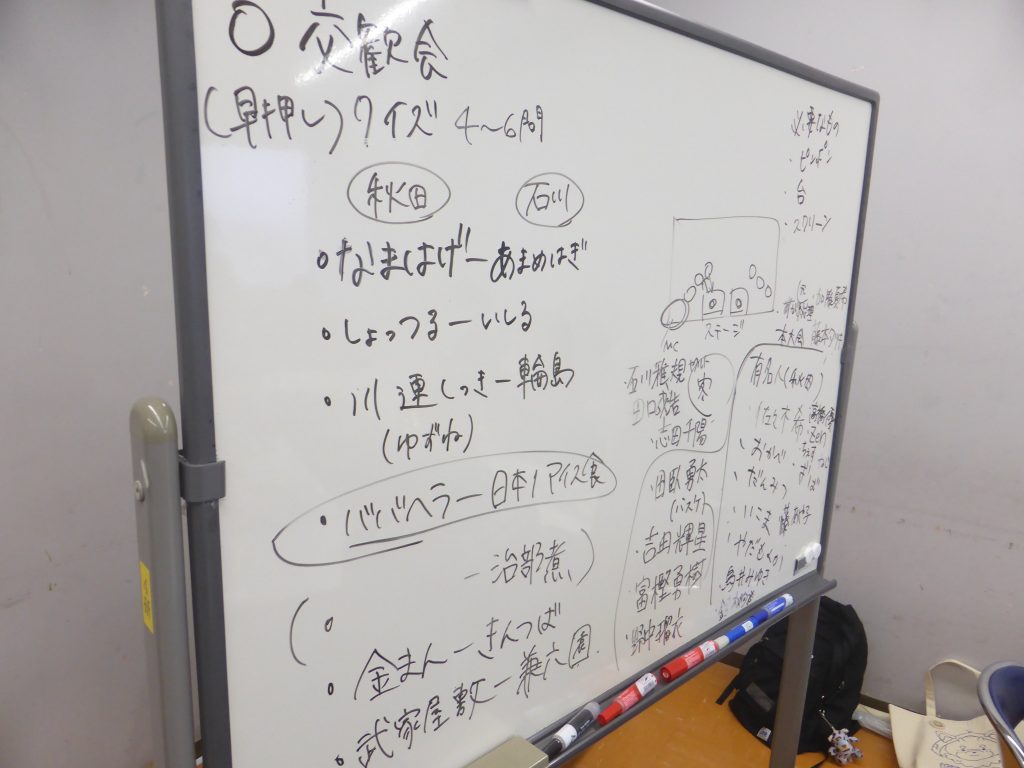 ○ 交歓会
(早押し)クイズ 4～6問
秋田 石川
・なまはげーあまめはぎ
・しょっつるーいしる
・川連しっきー輪島
(ゆずね)
・ババヘラー日本1アイス
ー治部煮)
(・
・金まんーきんつば
・武家屋敷ー兼六園.
必要なもの
・ピンポン
・台
・スクリーン
ステージ
MC
石川雅規
志田千陽
・田臥勇太
(バスケ)
・吉田輝星
・富樫勇樹
・野中瑠衣
有名人(秋田)
・佐々木希
・だんみつ
鳥井みゆき